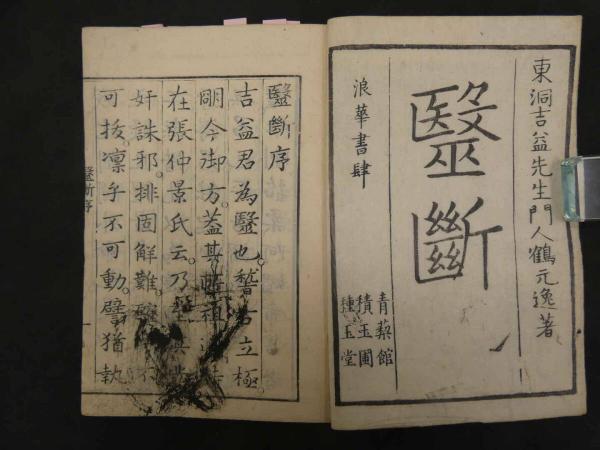 東洞吉益先生門人鶴元逸著
毉斷
浪華書肆
青藜館
積玉圃
種玉堂
毉斷序
吉益君為毉也。稽古立極。
明今御方。蓋其
在張仲景氏云。乃
奸誅邪。排固解難。不
可拔。凛乎不可動。譬猶執
毉斷序
一